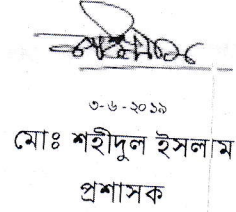 ৩-৬-২০১৯
মোঃ শহীদুল ইসলাম
প্রশাসক